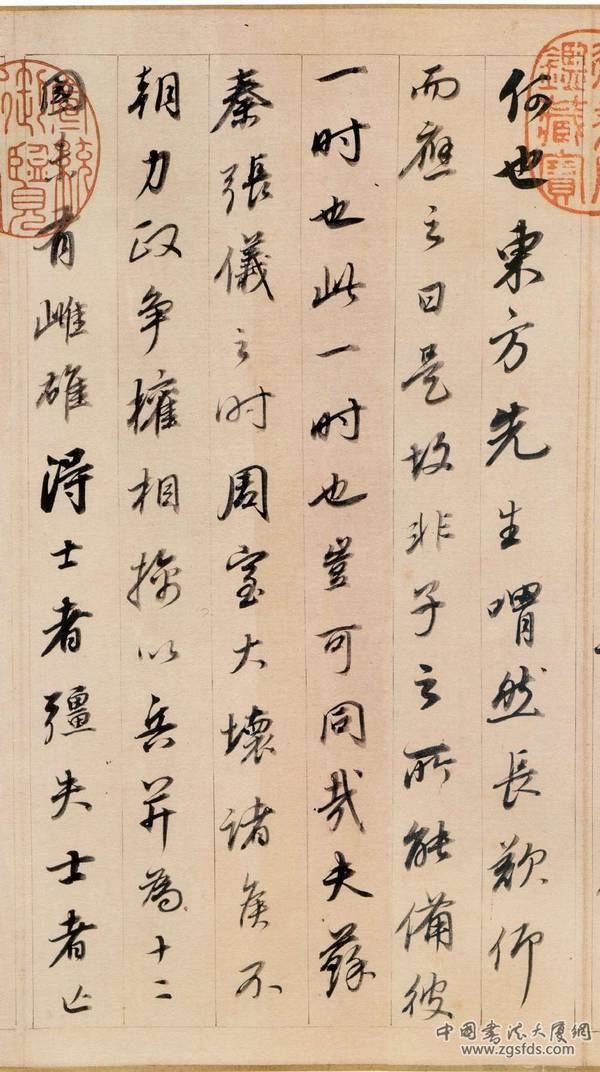 何也東方先生喟然長歎仰
而應之曰是故非子之所能備彼
一时也此一时也豈可同哉夫蘇
秦張儀之时周室大壞諸侯不
朝力政争權相擒以兵并為十二
國未有雌雄得士者彊失士者亡
鑑藏寶
宣統御覽
中国书法大厦網
www.zgsfds.com